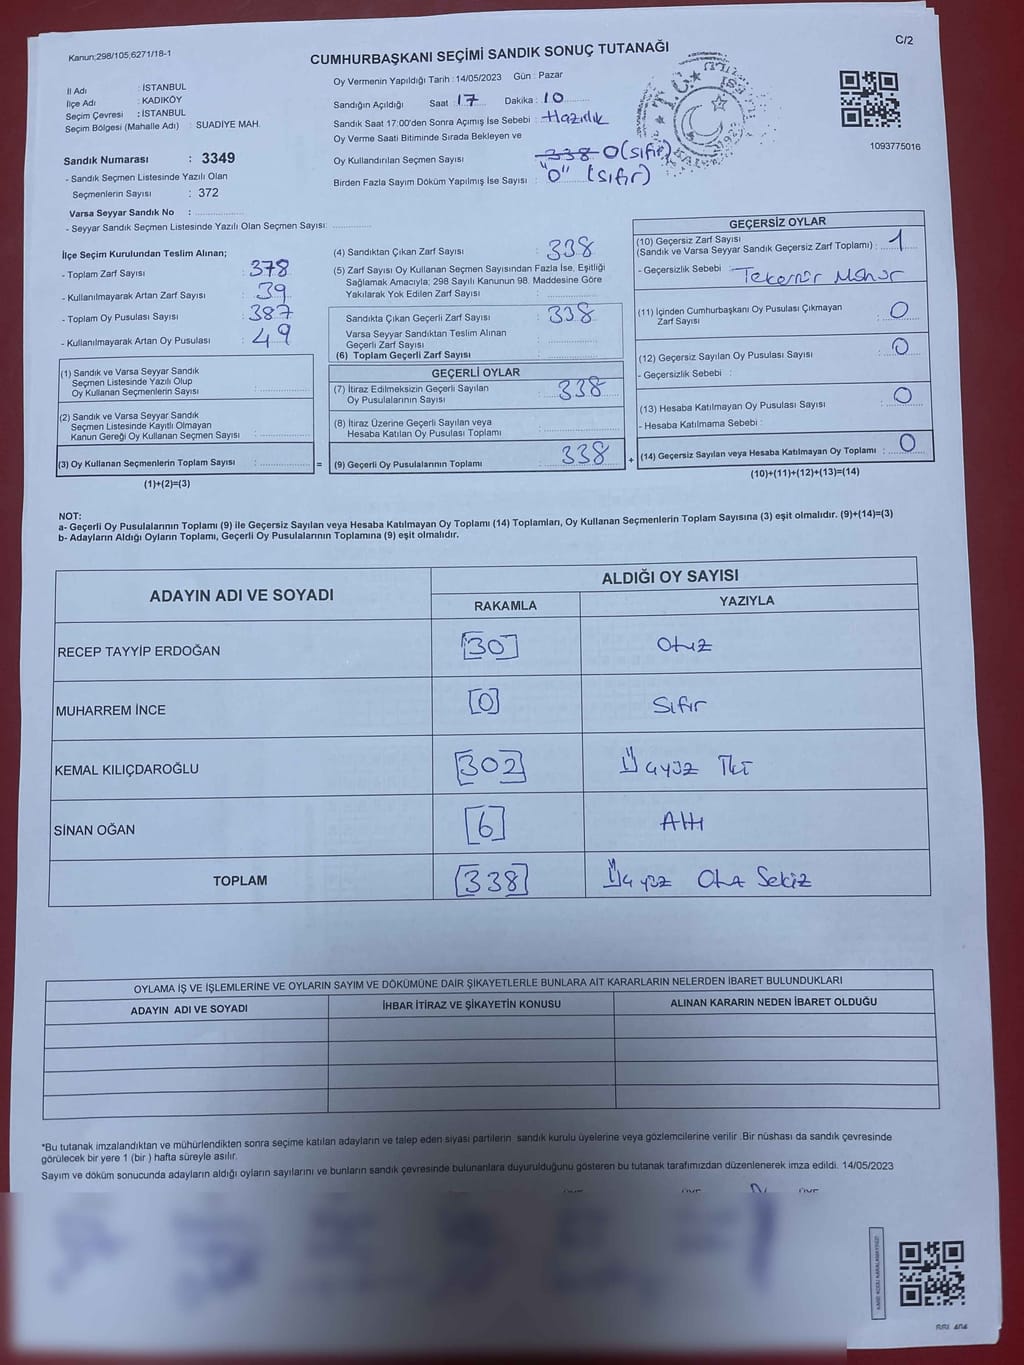 Kanun;298/105,6271/18-1
CUMHURBAŞKANI SEÇİMİ SANDIK SONUÇ TUTANAĞI
C/2
İl Adı : İSTANBUL
İlçe Adı : KADIKÖY
Seçim Çevresi : İSTANBUL
Seçim Bölgesi (Mahalle Adı) : SUADİYE MAH.
Sandık Numarası : 3349
- Sandık Seçmen Listesinde Yazılı Olan
Seçmenlerin Sayısı : 372
Varsa Seyyar Sandık No :
- Seyyar Sandık Seçmen Listesinde Yazılı Olan Seçmen Sayısı:
Oy Vermenin Yapıldığı Tarih :14/05/2023 Gün : Pazar
Sandığın Açıldığı Saat : 17 Dakika : 10
Sandık Saat 17:00'den Sonra Açımış İse Sebebi : Hazırlık
Oy Verme Saati Bitiminde Sırada Bekleyen ve
Oy Kullandırılan Seçmen Sayısı : 338 0 (sıfır)
Birden Fazla Sayım Döküm Yapılmış İse Sayısı : "0" (sıfır)
T.C.
1093775016
İlçe Seçim Kurulundan Teslim Alınan;
- Toplam Zarf Sayısı : 378
- Kullanılmayarak Artan Zarf Sayısı : 39
- Toplam Oy Pusulası Sayısı : 387
- Kullanılmayarak Artan Oy Pusulası : 49
(1) Sandık ve Varsa Seyyar Sandık
Seçmen Listesinde Yazılı Olup
Oy Kullanan Seçmenlerin Sayısı :
(2) Sandık ve Varsa Seyyar Sandık
Seçmen Listesinde Kayıtlı Olmayan
Kanun Gereği Oy Kullanan Seçmen Sayısı :
(3) Oy Kullanan Seçmenlerin Toplam Sayısı : =
(1)+(2)=(3)
(4) Sandıktan Çıkan Zarf Sayısı : 338
(5) Zarf Sayısı Oy Kullanan Seçmen Sayısından Fazla İse, Eşitliği
Sağlamak Amacıyla; 298 Sayılı Kanunun 98. Maddesine Göre
Yakılarak Yok Edilen Zarf Sayısı :
Sandıkta Çıkan Geçerli Zarf Sayısı : 338
Varsa Seyyar Sandıktan Teslim Alınan
Geçerli Zarf Sayısı :
(6) Toplam Geçerli Zarf Sayısı :
GEÇERLİ OYLAR
(7) İtiraz Edilmeksizin Geçerli Sayılan
Oy Pusulalarının Sayısı : 338
(8) İtiraz Üzerine Geçerli Sayılan veya
Hesaba Katılan Oy Pusulası Toplamı :
(9) Geçerli Oy Pusulalarının Toplamı : 338 +
GEÇERSİZ OYLAR
(10) Geçersiz Zarf Sayısı
(Sandık ve Varsa Seyyar Sandık Geçersiz Zarf Toplamı) : 1
- Geçersizlik Sebebi :
(11) İçinden Cumhurbaşkanı Oy Pusulası Çıkmayan
Zarf Sayısı : 0
(12) Geçersiz Sayılan Oy Pusulası Sayısı : 0
- Geçersizlik Sebebi :
(13) Hesaba Katılmayan Oy Pusulası Sayısı : 0
- Hesaba Katılmama Sebebi :
(14) Geçersiz Sayılan veya Hesaba Katılmayan Oy Toplamı : 0
(10)+(11)+(12)+(13)=(14)
NOT:
a- Geçerli Oy Pusulalarının Toplamı (9) ile Geçersiz Sayılan veya Hesaba Katılmayan Oy Toplamı (14) Toplamları, Oy Kullanan Seçmenlerin Toplam Sayısına (3) eşit olmalıdır. (9)+(14)=(3)
b- Adayların Aldığı Oyların Toplamı, Geçerli Oy Pusulalarının Toplamına (9) eşit olmalıdır.
ADAYIN ADI VE SOYADI
ALDIĞI OY SAYISI
RAKAMLA YAZIYLA
RECEP TAYYİP ERDOĞAN [30] Otuz
MUHARREM İNCE [0] Sıfır
KEMAL KILIÇDAROĞLU [302] Üçyüz İki
SİNAN OĞAN [6] Altı
TOPLAM [338] Üçyüz Otuz Sekiz
OYLAMA İŞ VE İŞLEMLERİNE VE OYLARIN SAYIM VE DÖKÜMÜNE DAİR ŞİKAYETLERLE BUNLARA AİT KARARLARIN NELERDEN İBARET BULUNDUKLARI
ADAYIN ADI VE SOYADI İHBAR İTİRAZ VE ŞİKAYETİN KONUSU ALINAN KARARIN NEDEN İBARET OLDUĞU
*Bu tutanak imzalandıktan ve mühürlendikten sonra seçime katılan adayların ve talep eden siyasi partilerin sandık kurulu üyelerine veya gözlemcilerine verilir .Bir nüshası da sandık çevresinde
görülecek bir yere 1 (bir ) hafta süreyle asılır.
Sayım ve döküm sonucunda adayların aldığı oyların sayılarını ve bunların sandık çevresinde bulunanlara duyurulduğunu gösteren bu tutanak tarafımızdan düzenlenerek imza edildi. 14/05/2023
KARE KODU KARALAMAYINIZ!